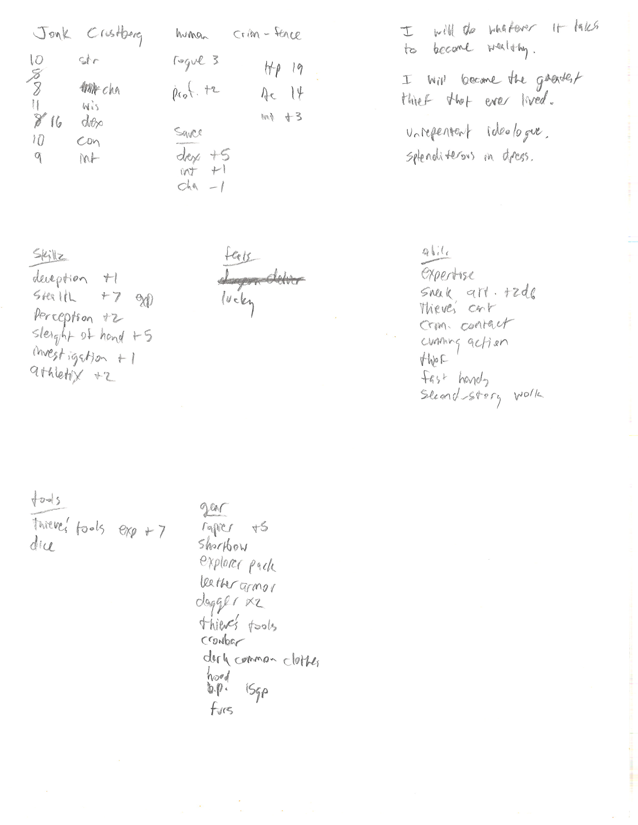 Jonk Crustberg human crim-fence
10 str
8
8 cha
11 wis
8 16 dex
10 con
9 int
rogue 3
prof. +2
Hp 19
Ac 14
int +3
Saves
dex +5
int +1
cha -1
I will do whatever it takes
to become wealthy.
I will become the greatest
thief that ever lived.
unrepentent ideologue.
splenditerous in dress.
Skillz
deception +1
stealth +7 exp
perception +2
sleight of hand +5
investigation +1
athletix +2
feats
lucky
abils
expertise
sneak att. +2d6
thieve's cant
crim. contact
cunning action
thief
fast hands
second-story work
tools
thieve's tools exp +7
dice
gear
rapier +5
shortbow
explorer pack
leather armor
dagger x2
thieve's tools
crowbar
dark common clothes
hood
b.p. 15gp
furs